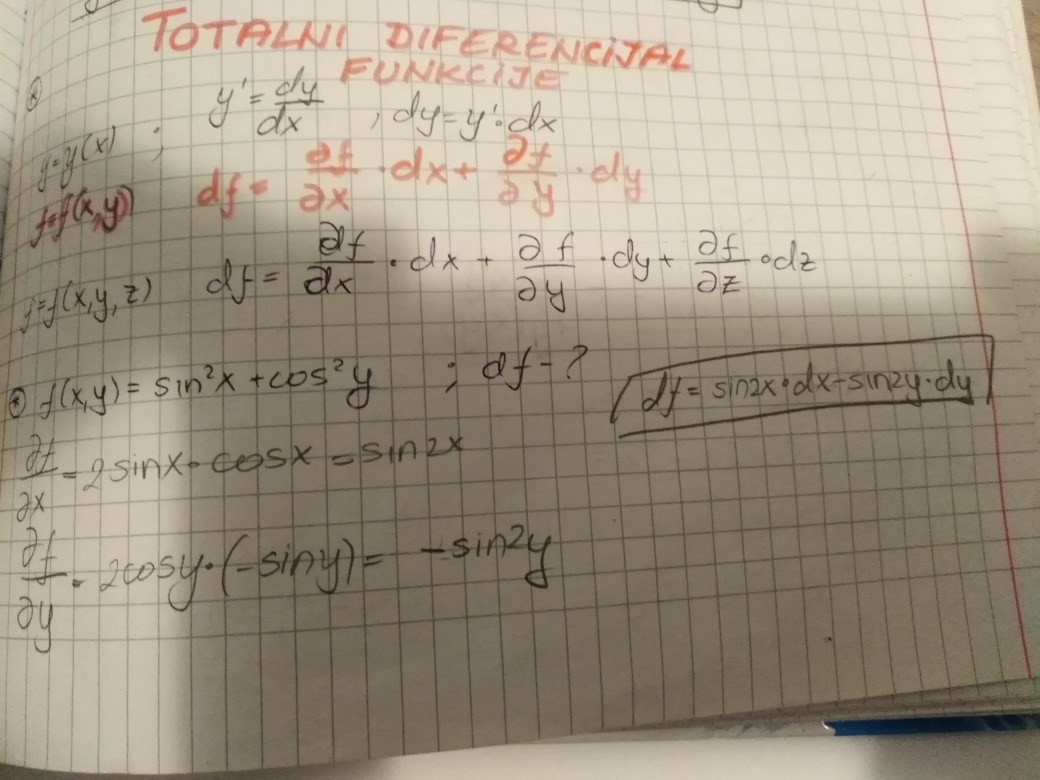 TOTALNI DIFERENCIJAL
FUNKCIJE
y=y(x) ; y' = dy/dx , dy=y'·dx
f=f(x,y) df = ∂f/∂x · dx + ∂f/∂y · dy
f=f(x,y,z) df = ∂f/∂x · dx + ∂f/∂y · dy + ∂f/∂z · dz
f(x,y) = sin²x + cos²y ; df - ?
df = sin2x·dx - sin2y·dy
∂f/∂x = 2sinx·cosx = sin2x
∂f/∂y = 2cosy·(-siny) = -sin2y